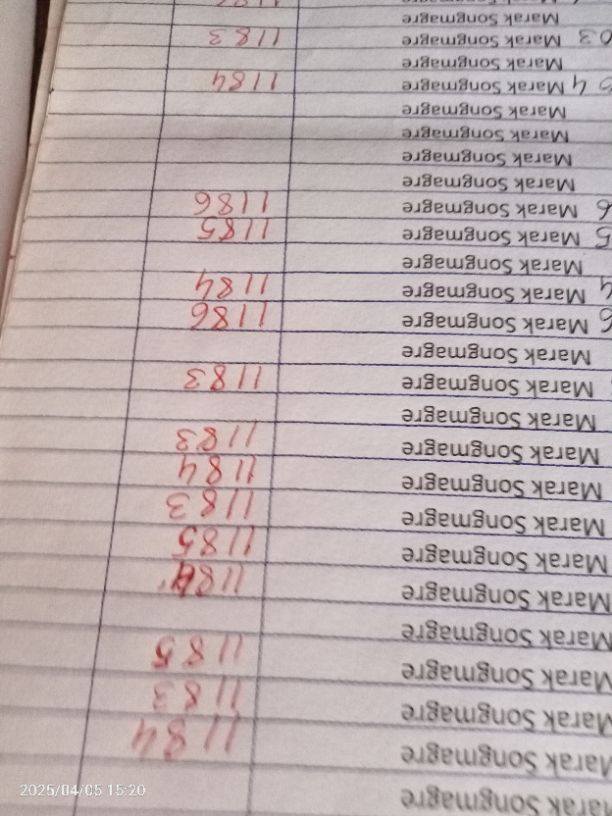 Marak Songmagre
Marak Songmagre 1184
Marak Songmagre 1183
Marak Songmagre 1185
Marak Songmagre
Marak Songmagre 1184
Marak Songmagre 1185
Marak Songmagre 1183
Marak Songmagre 1184
Marak Songmagre 1183
Marak Songmagre
Marak Songmagre 1183
Marak Songmagre
6 Marak Songmagre 1186
4 Marak Songmagre 1184
Marak Songmagre
5 Marak Songmagre 1185
6 Marak Songmagre 1186
Marak Songmagre
Marak Songmagre
Marak Songmagre
Marak Songmagre
4 Marak Songmagre 1184
Marak Songmagre
03 Marak Songmagre 1183
Marak Songmagre
2025/04/05 15:20